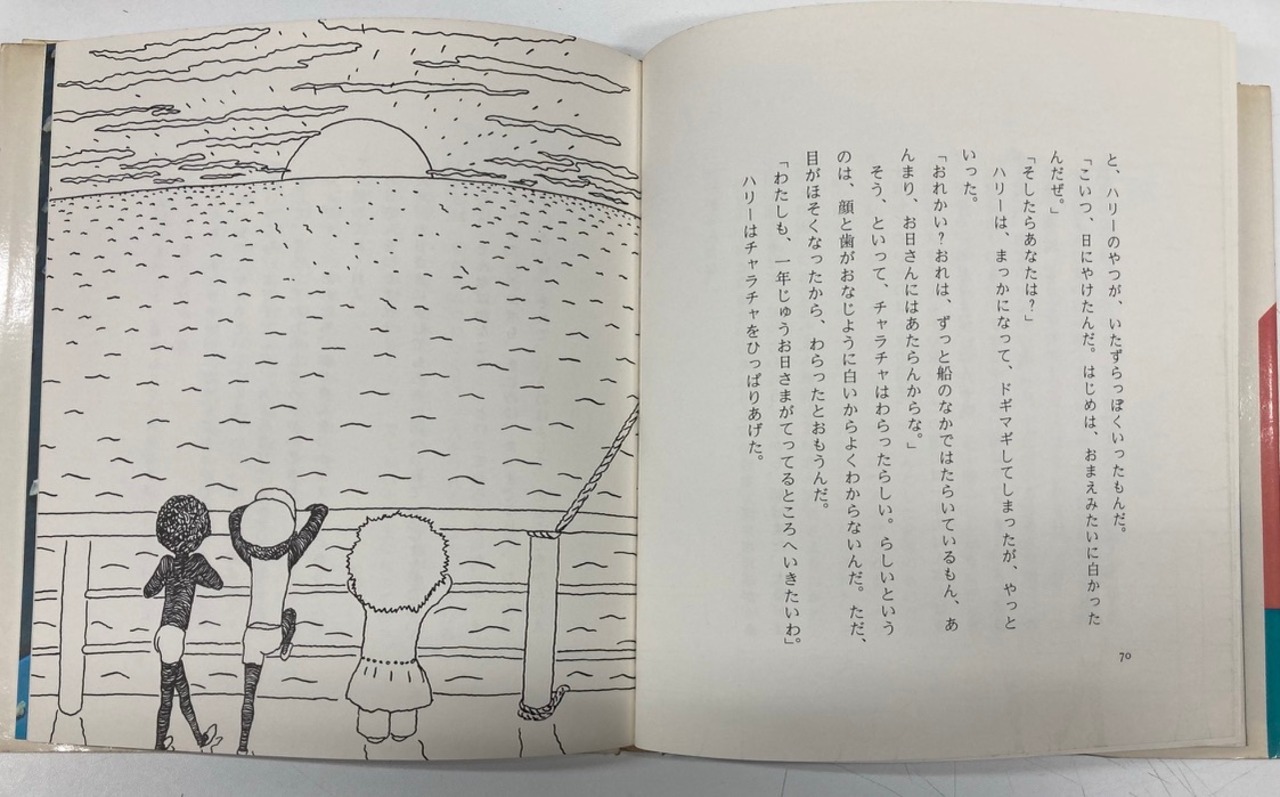 と、ハリーのやつが、いたずらっぽくいったもんだ。
「こいつ、日にやけたんだ。はじめは、おまえみたいに白かった
んだぜ。」
「そしたらあなたは？」
ハリーは、まっかになって、ドギマギしてしまったが、やっと
いった。
「おれかい？おれは、ずっと船のなかではたらいているもん、あ
んまり、お日さんにはあたらんからな。」
そう、といって、チャラチャはわらったらしい。らしいという
のは、顔と歯がおなじように白いからよくわからないんだ。ただ、
目がほそくなったから、わらったとおもうんだ。
「わたしも、一年じゅうお日さまがてってるところへいきたいわ」。
ハリーはチャラチャをひっぱりあげた。
70